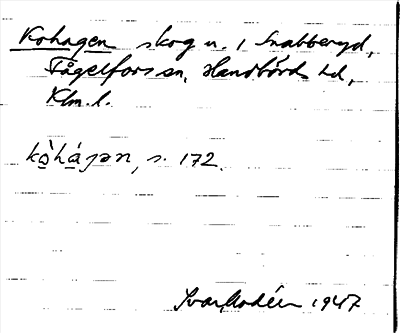 Kohagen skog n. i Snabberyd,
Fågelfors sn, Handbörds hd,
Klm. l.
kò̱há̱gən, s. 172.
Ivar Modéer 1947